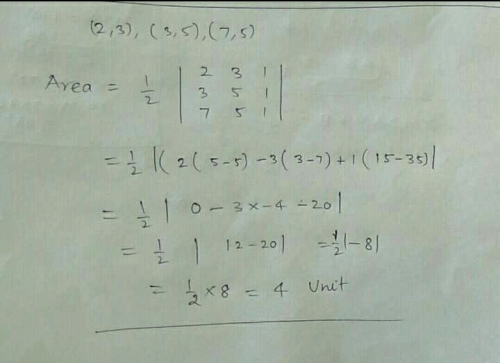 (2,3), (3,5), (7,5)
Area = 1/2 | 2 3 1 |
| 3 5 1 |
| 7 5 1 |
= 1/2 |( 2( 5-5) -3( 3-7) +1( 15-35)|
= 1/2 | 0 - 3×-4 -20|
= 1/2 | 12-20| = 1/2|-8|
= 1/2 × 8 = 4 Unit